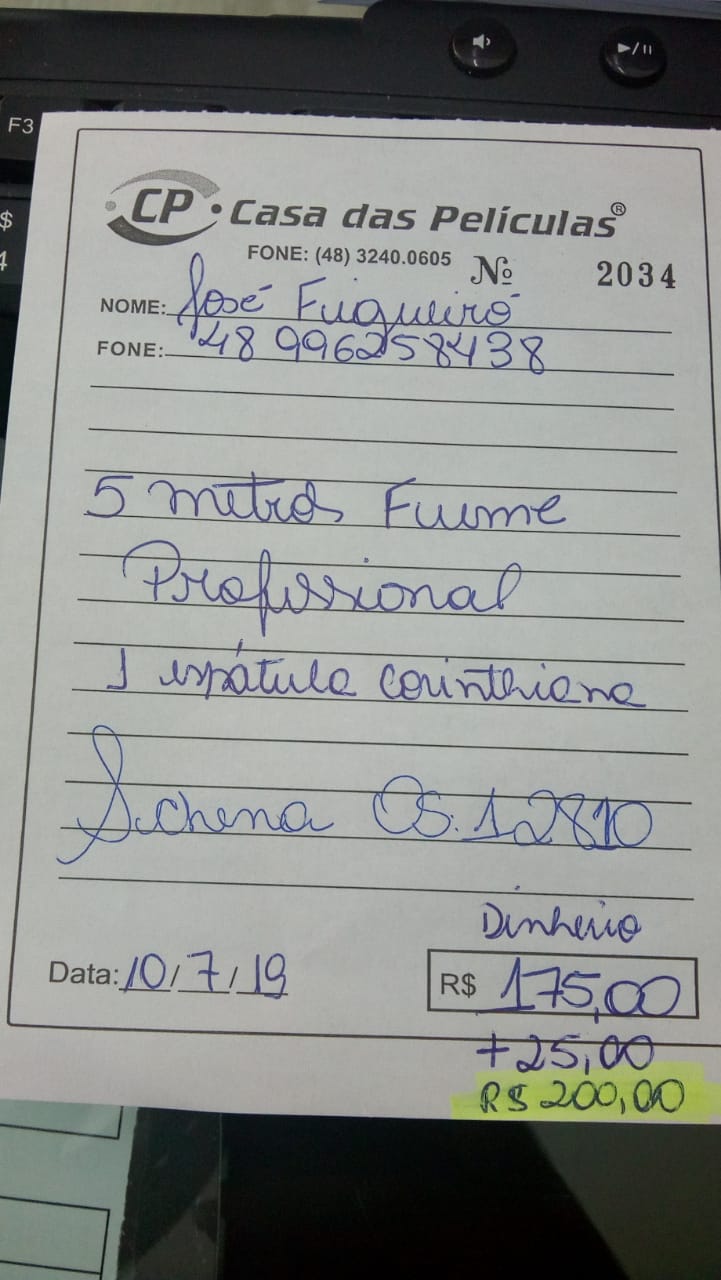 F3
$
4
CP · Casa das Películas®
FONE: (48) 3240.0605 Nº 2034
NOME: José Fuigueiró
FONE: 48 996258438
5 metros Fuume
Profissional
1 espátula corinthiana
Schena OS. 12810
Dinheiro
Data: 10/7/19 R$ 175,00
+25,00
R$ 200,00